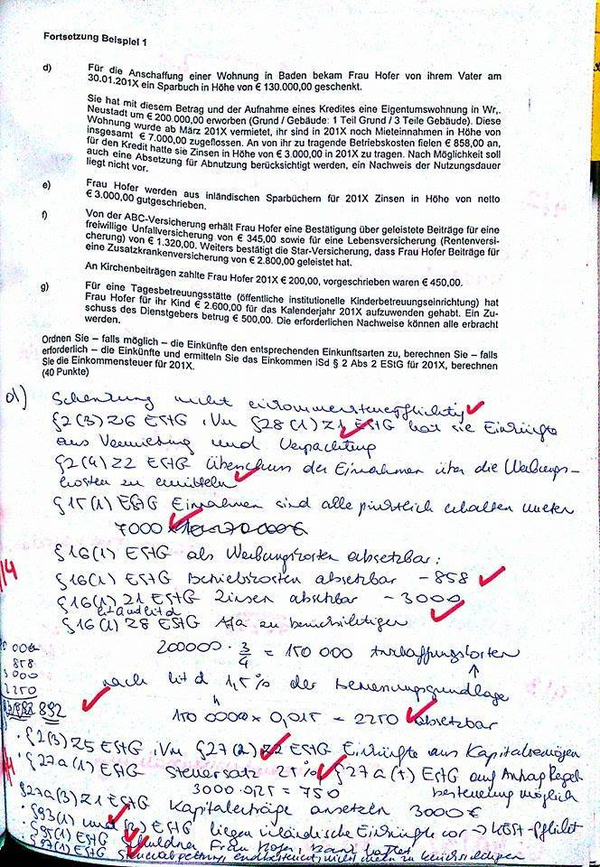 Fortsetzung Beispiel 1
d) Für die Anschaffung einer Wohnung in Baden bekam Frau Hofer von ihrem Vater am
30.01.201X ein Sparbuch in Höhe von € 130.000,00 geschenkt.
Sie hat mit diesem Betrag und der Aufnahme eines Kredites eine Eigentumswohnung in Wr,.
Neustadt um € 200.000,00 erworben (Grund / Gebäude: 1 Teil Grund / 3 Teile Gebäude). Diese
Wohnung wurde ab März 201X vermietet, ihr sind in 201X noch Mieteinnahmen in Höhe von
insgesamt € 7.000,00 zugeflossen. An von ihr zu tragende Betriebskosten fielen € 858,00 an,
für den Kredit hatte sie Zinsen in Höhe von € 3.000,00 in 201X zu tragen. Nach Möglichkeit soll
auch eine Absetzung für Abnutzung berücksichtigt werden, ein Nachweis der Nutzungsdauer
liegt nicht vor.
e) Frau Hofer werden aus inländischen Sparbüchern für 201X Zinsen in Höhe von netto
€ 3.000,00 gutgeschrieben.
f) Von der ABC-Versicherung erhält Frau Hofer eine Bestätigung über geleistete Beiträge für eine
freiwillige Unfallversicherung von € 345,00 sowie für eine Lebensversicherung (Rentenversi-
cherung) von € 1.320,00. Weiters bestätigt die Star-Versicherung, dass Frau Hofer Beiträge für
eine Zusatzkrankenversicherung von € 2.800,00 geleistet hat.
An Kirchenbeiträgen zahlte Frau Hofer 201X € 200,00, vorgeschrieben waren € 450,00.
g) Für eine Tagesbetreuungsstätte (öffentliche institutionelle Kinderbetreuungseinrichtung) hat
Frau Hofer für ihr Kind € 2.600,00 für das Kalenderjahr 201X aufzuwenden gehabt. Ein Zu-
schuss des Dienstgebers betrug € 500,00. Die erforderlichen Nachweise können alle erbracht
werden.
Ordnen Sie – falls möglich – die Einkünfte den entsprechenden Einkunftsarten zu, berechnen Sie – falls
erforderlich – die Einkünfte und ermitteln Sie das Einkommen iSd § 2 Abs 2 EStG für 201X, berechnen
Sie die Einkommensteuer für 201X.
(40 Punkte)
d) Schenkung nicht einkommensteuerpflichtig
§2(3)Z6 EStG iVm §28(1)Z1 EStG hat sie Einkünfte
aus Vermietung und Verpachtung
§2(4)Z2 EStG Überschuss der Einnahmen über die Werbungs-
kosten zu ermitteln
§15(1) EStG Einnahmen sind alle
7000
§16(1) EStG als Werbungskosten absetzbar:
§16(1) EStG Betriebskosten absetzbar - 858
§16(1) Z1 EStG Zinsen absetzbar - 3000
§16(1) Z8 EStG AfA zu berücksichtigen
200000 · 3/4 = 150 000 Anschaffungskosten
nach lit d 1,5% der Bemessungsgrundlage
150 0000 x 0,015 = 2250 absetzbar
858
3000
2250
892
· §2(3)Z5 EStG iVm §27(2)Z2 EStG Einkünfte aus Kapitalvermögen
· §27a(1) EStG Steuersatz 25% §27a(5) EStG auf Antrag Regel-
besteuerung möglich
3000·0,25 = 750
§27a(3)Z1 EStG Kapitalerträge ansetzen 3000€
· §93(1) und (2) EStG liegen inländische Einkünfte vor → KESt-Pflicht
· §95(1) EStG Schuldner Frau Hofer,
· §97(1) EStG